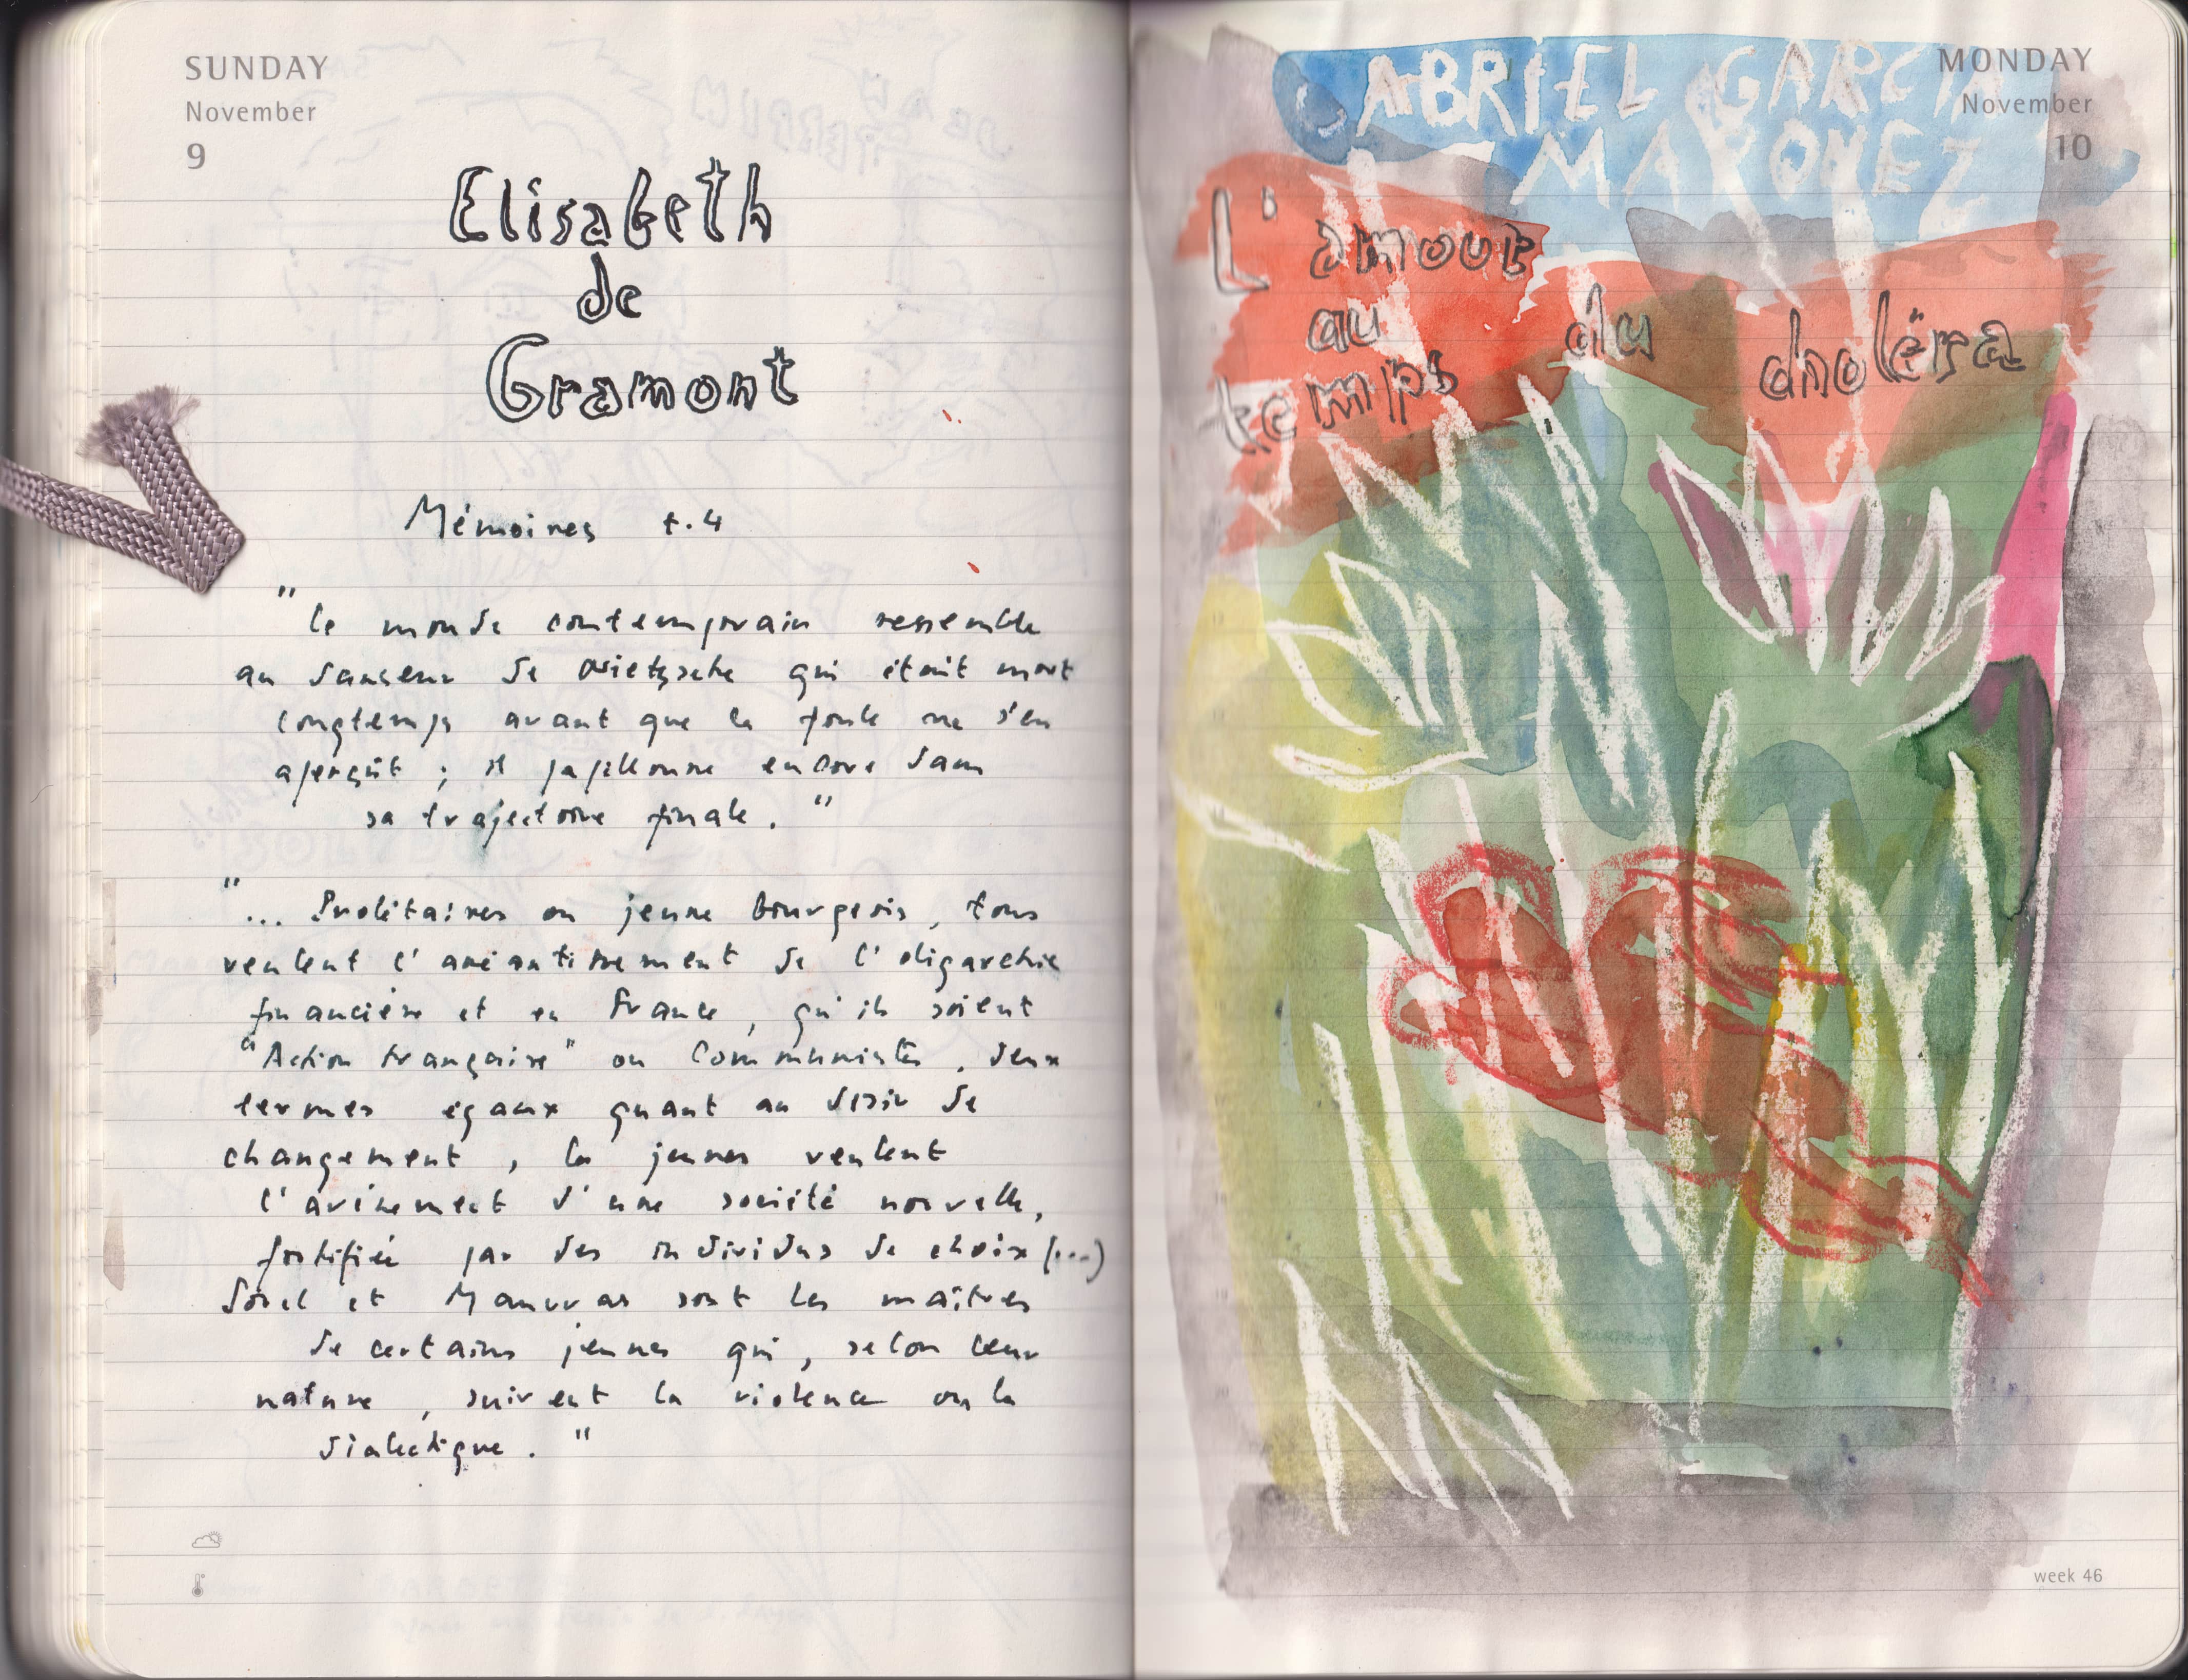 SUNDAY
November
9
Elisabeth
de
Gramont
Mémoires t.4
"Le monde contemporain ressemble
au danseur de Nietzsche qui était mort
longtemps avant que la foule ne s'en
aperçût ; il papillonne encore dans
sa trajectoire finale. "
"... Prolétaires ou jeune bourgeois, tous
veulent l'anéantissement de l'oligarchie
financière et en France, qu'ils soient
"Action française" ou Communistes, deux
termes égaux quant au désir de
changement, les jeunes veulent
l'avènement d'une société nouvelle,
fortifiée par des individus de choix (...)
Sorel et Maurras sont les maîtres
de certains jeunes qui, selon leur
nature, suivent la violence ou la
dialectique. "
MONDAY
November
10
GABRIEL GARCIA
MARQUEZ
L'amour
au
temps du choléra
week 46